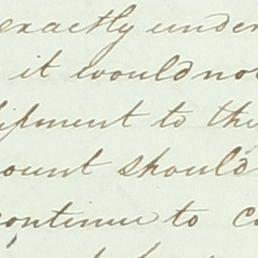 exactly under
it would not
ipment to the
ount should
continue to c